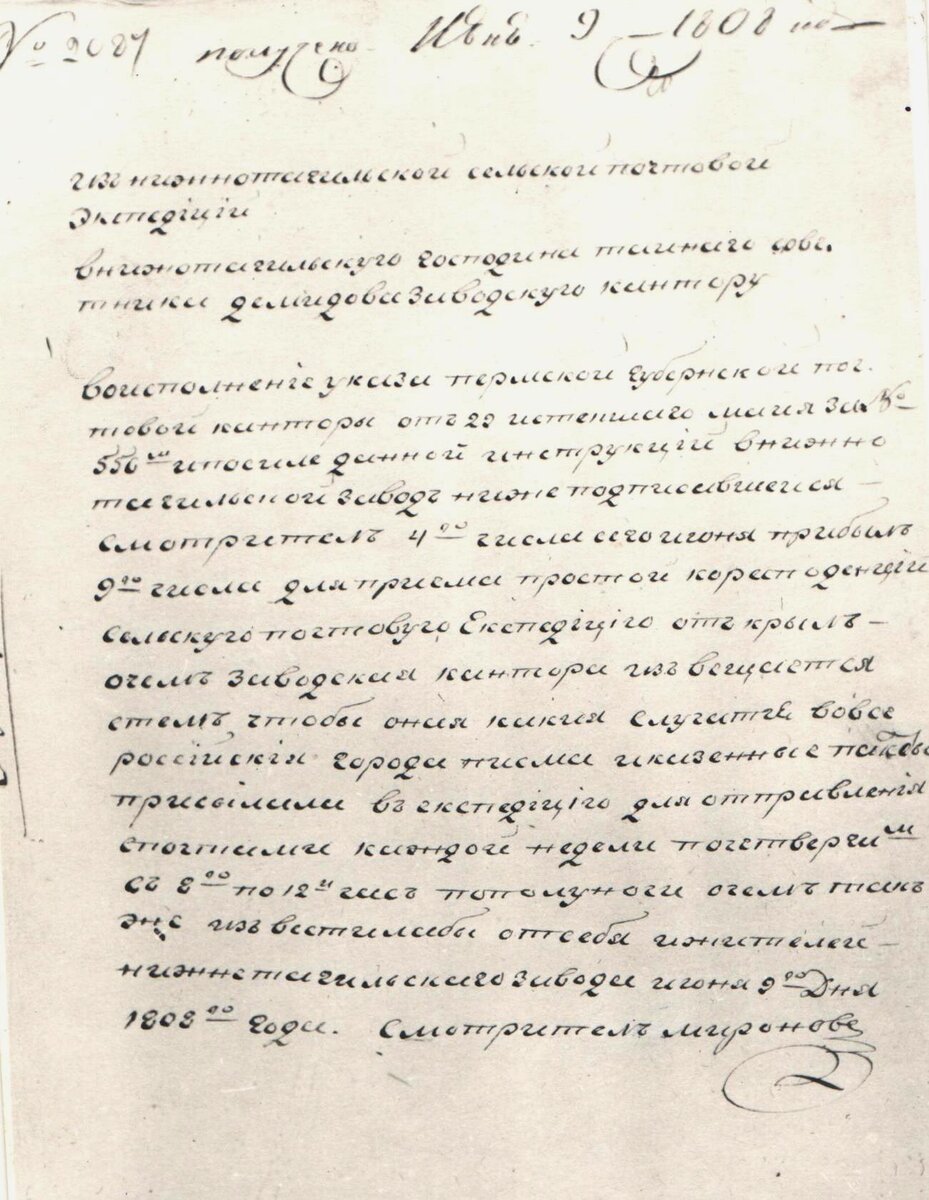 № 2087 получено Июнь 9 1808 го
изъ нижнотагильской сельской почтовой
экспедіціи
внижнотагильскую господина тайнаго сове.
тника демидова заводскую кантору
воисполненіе указа пермской губернской поч.
товой канторы отъ 29 истекшаго маия за №
550м ипосиле данной инструкціи внижно
тагильской заводъ нижеподписавшейся —
смотритель 4го числа сего июня прибылъ
9го числа для приема простой коресподенціи
сельскую почтовую Експедіцію открылъ —
очемъ заводская кантора изъвещается
стемъ чтобы оная какия случатся вовсе
россійскія города писма иказенные пакеты
присылали въ експедіцію для отправленія
спочтами каждой недели почетвергам
съ 8го по 12й часъ пополуночи очемъ такъ
же изъвестилабы отсебя ижителей —
нижнетагильскаго завода июня 9го Дня
1808го года. Смотритель мироновъ